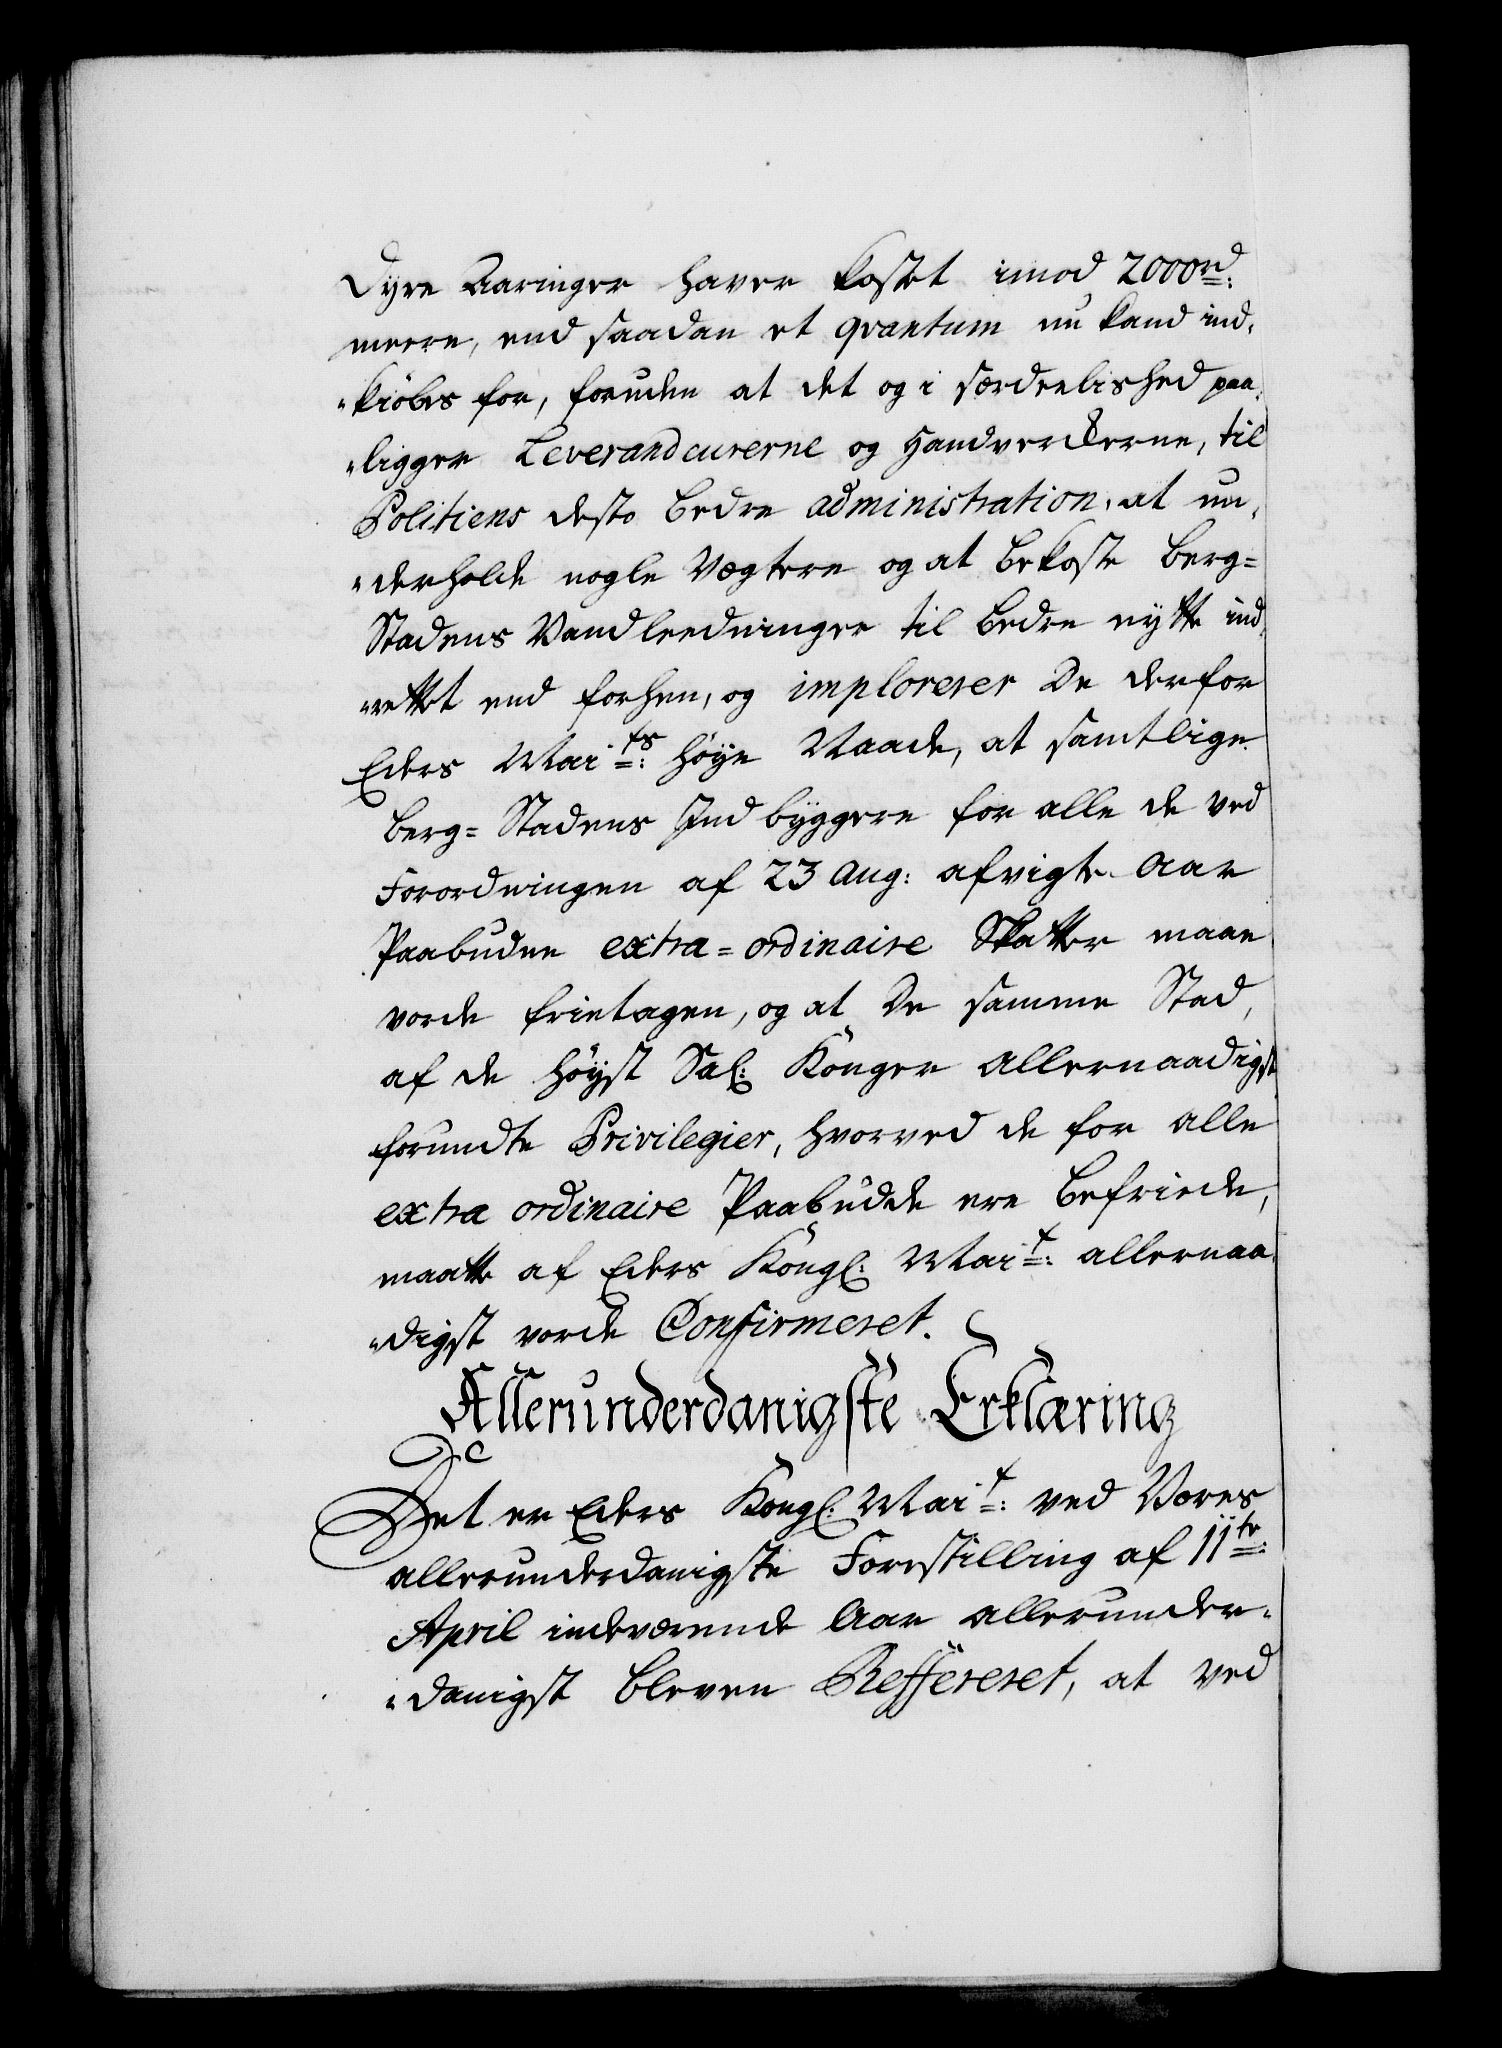 Dyre Aaringer haver kostet imod 2000rd:
meere, end saadan et qvantum nu kand ind,
"kiöbes for, foruden at det og i særdeelished paa,
"ligger Leverandeurerne og Handverckerne, til
Politiens desto bedre administration, at un,
"derholde nogle Vægtere og at bekoste Berg=
Stadens Vandleedninger til bedre nytte ind,
"rettet end forhen, og implorerer De derfor
Eders Maits: höye Naade, at samtlige
Berg=Stadens Indbÿggere for alle de ved
Forordningen af 23 Aug: afvigte Aar
Paabudne extra=ordinaire Skatter maae
vorde frietagen, og at De samme Stad,
af de höyst Sal: Konger allernaadigst
forundte Privilegier, hvorved de for alle
extra ordinaire Paabudde ere befriede,
maatte af Eders Kongl: Mait: allernaa,
"digst vorde Confirmeret.
Allerunderdanigste Erklæring
Det er Eders Kongl: Mait: ved Vores
allerunderdanigste Forestilling af 11te:
April indeværende Aar allerunder,
"danigst bleven Reffereret, at ved